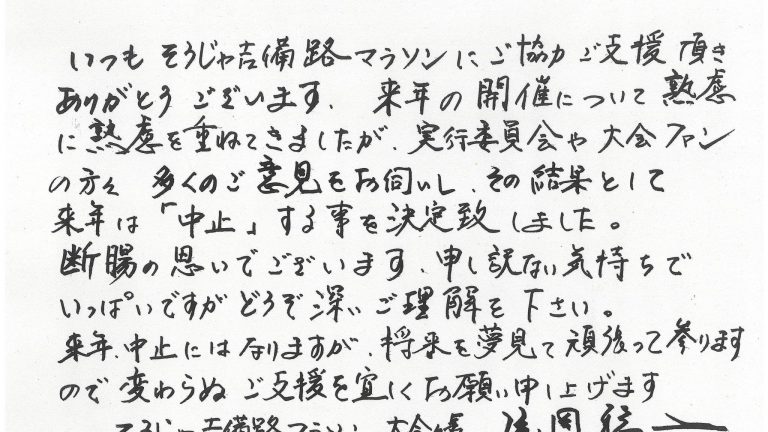 いつも そうじゃ吉備路マラソンにご協力ご支援 頂き
ありがとう ございます、 来年の開催について熟慮
に熟慮を重ねてきましたが、実行委員会や大会ファン
の方々 多くのご意見をお伺いし、その結果として
来年は「中止」する事を決定致しました。
断腸の思いでございます、申し訳ない気持ちで
いっぱいですがどうぞ深いご理解を下さい。
来年、中止にはなりますが、将来を夢見て頑張って参ります
ので変わらぬ ご支援を宜しくお願い申し上げます
そうじゃ吉備路マラソン 大会